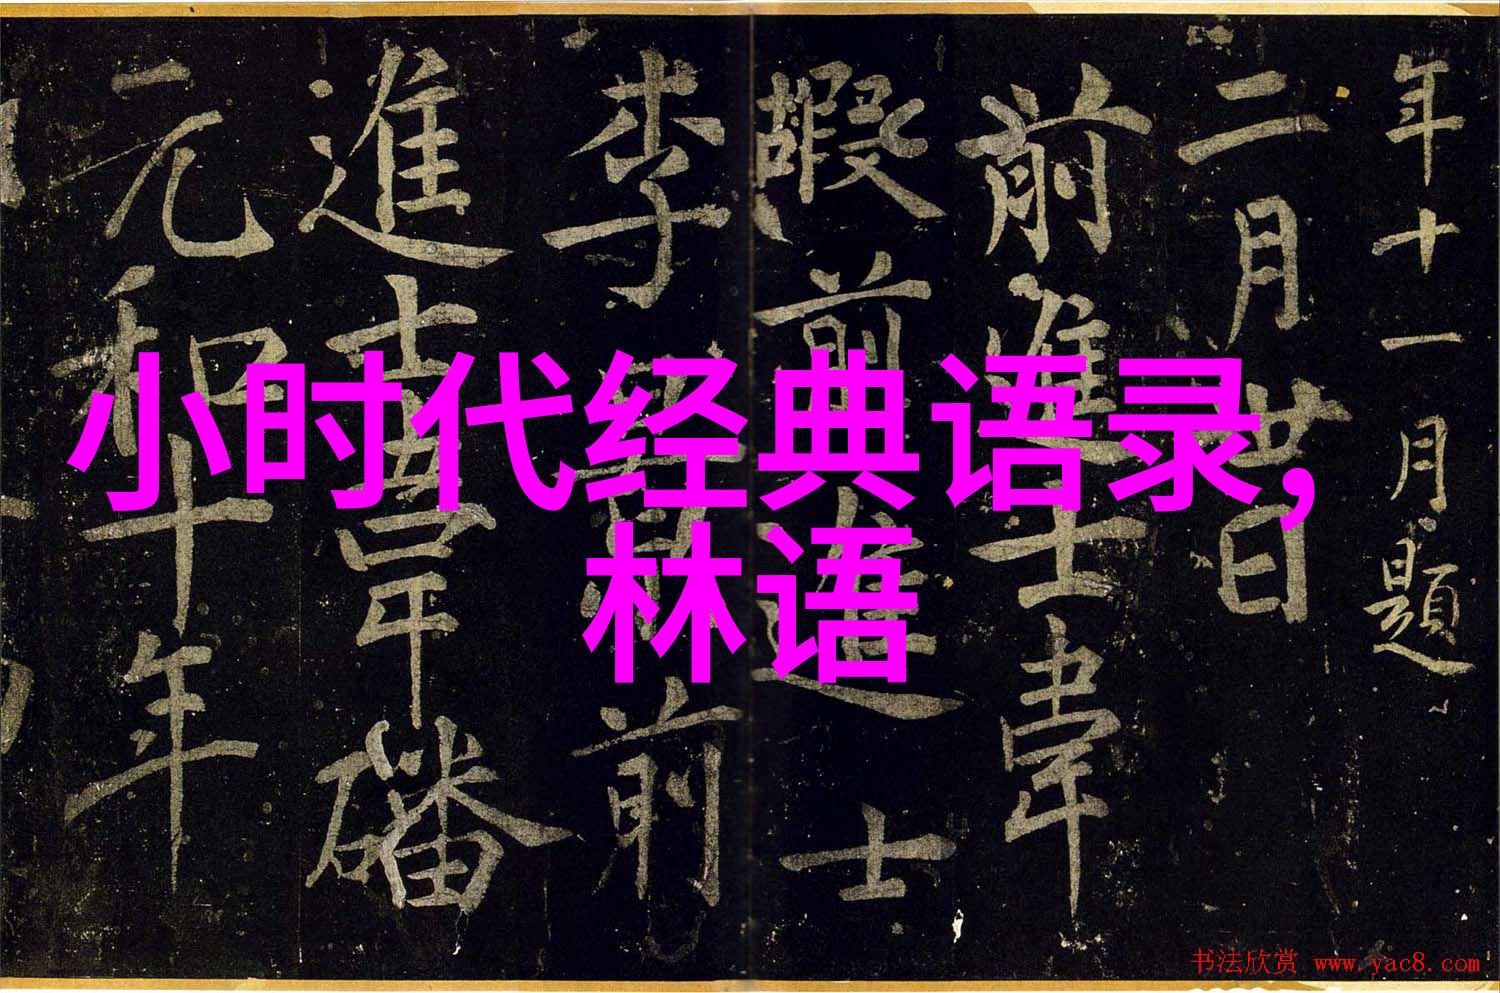 小时代经典语录,
林语
年十一月題
二月廿日
前進士韋
嘏前進士
李 前
進士 磻
元和十年
书法欣赏 www.yac8.com